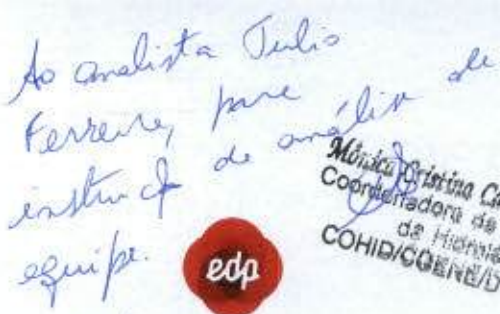 Ao analista Tulio
Ferreira, para
instrução de análise de
equipe.
edp
Mônica Cristina
Coordenadora de
de
COHID/CGENE/D